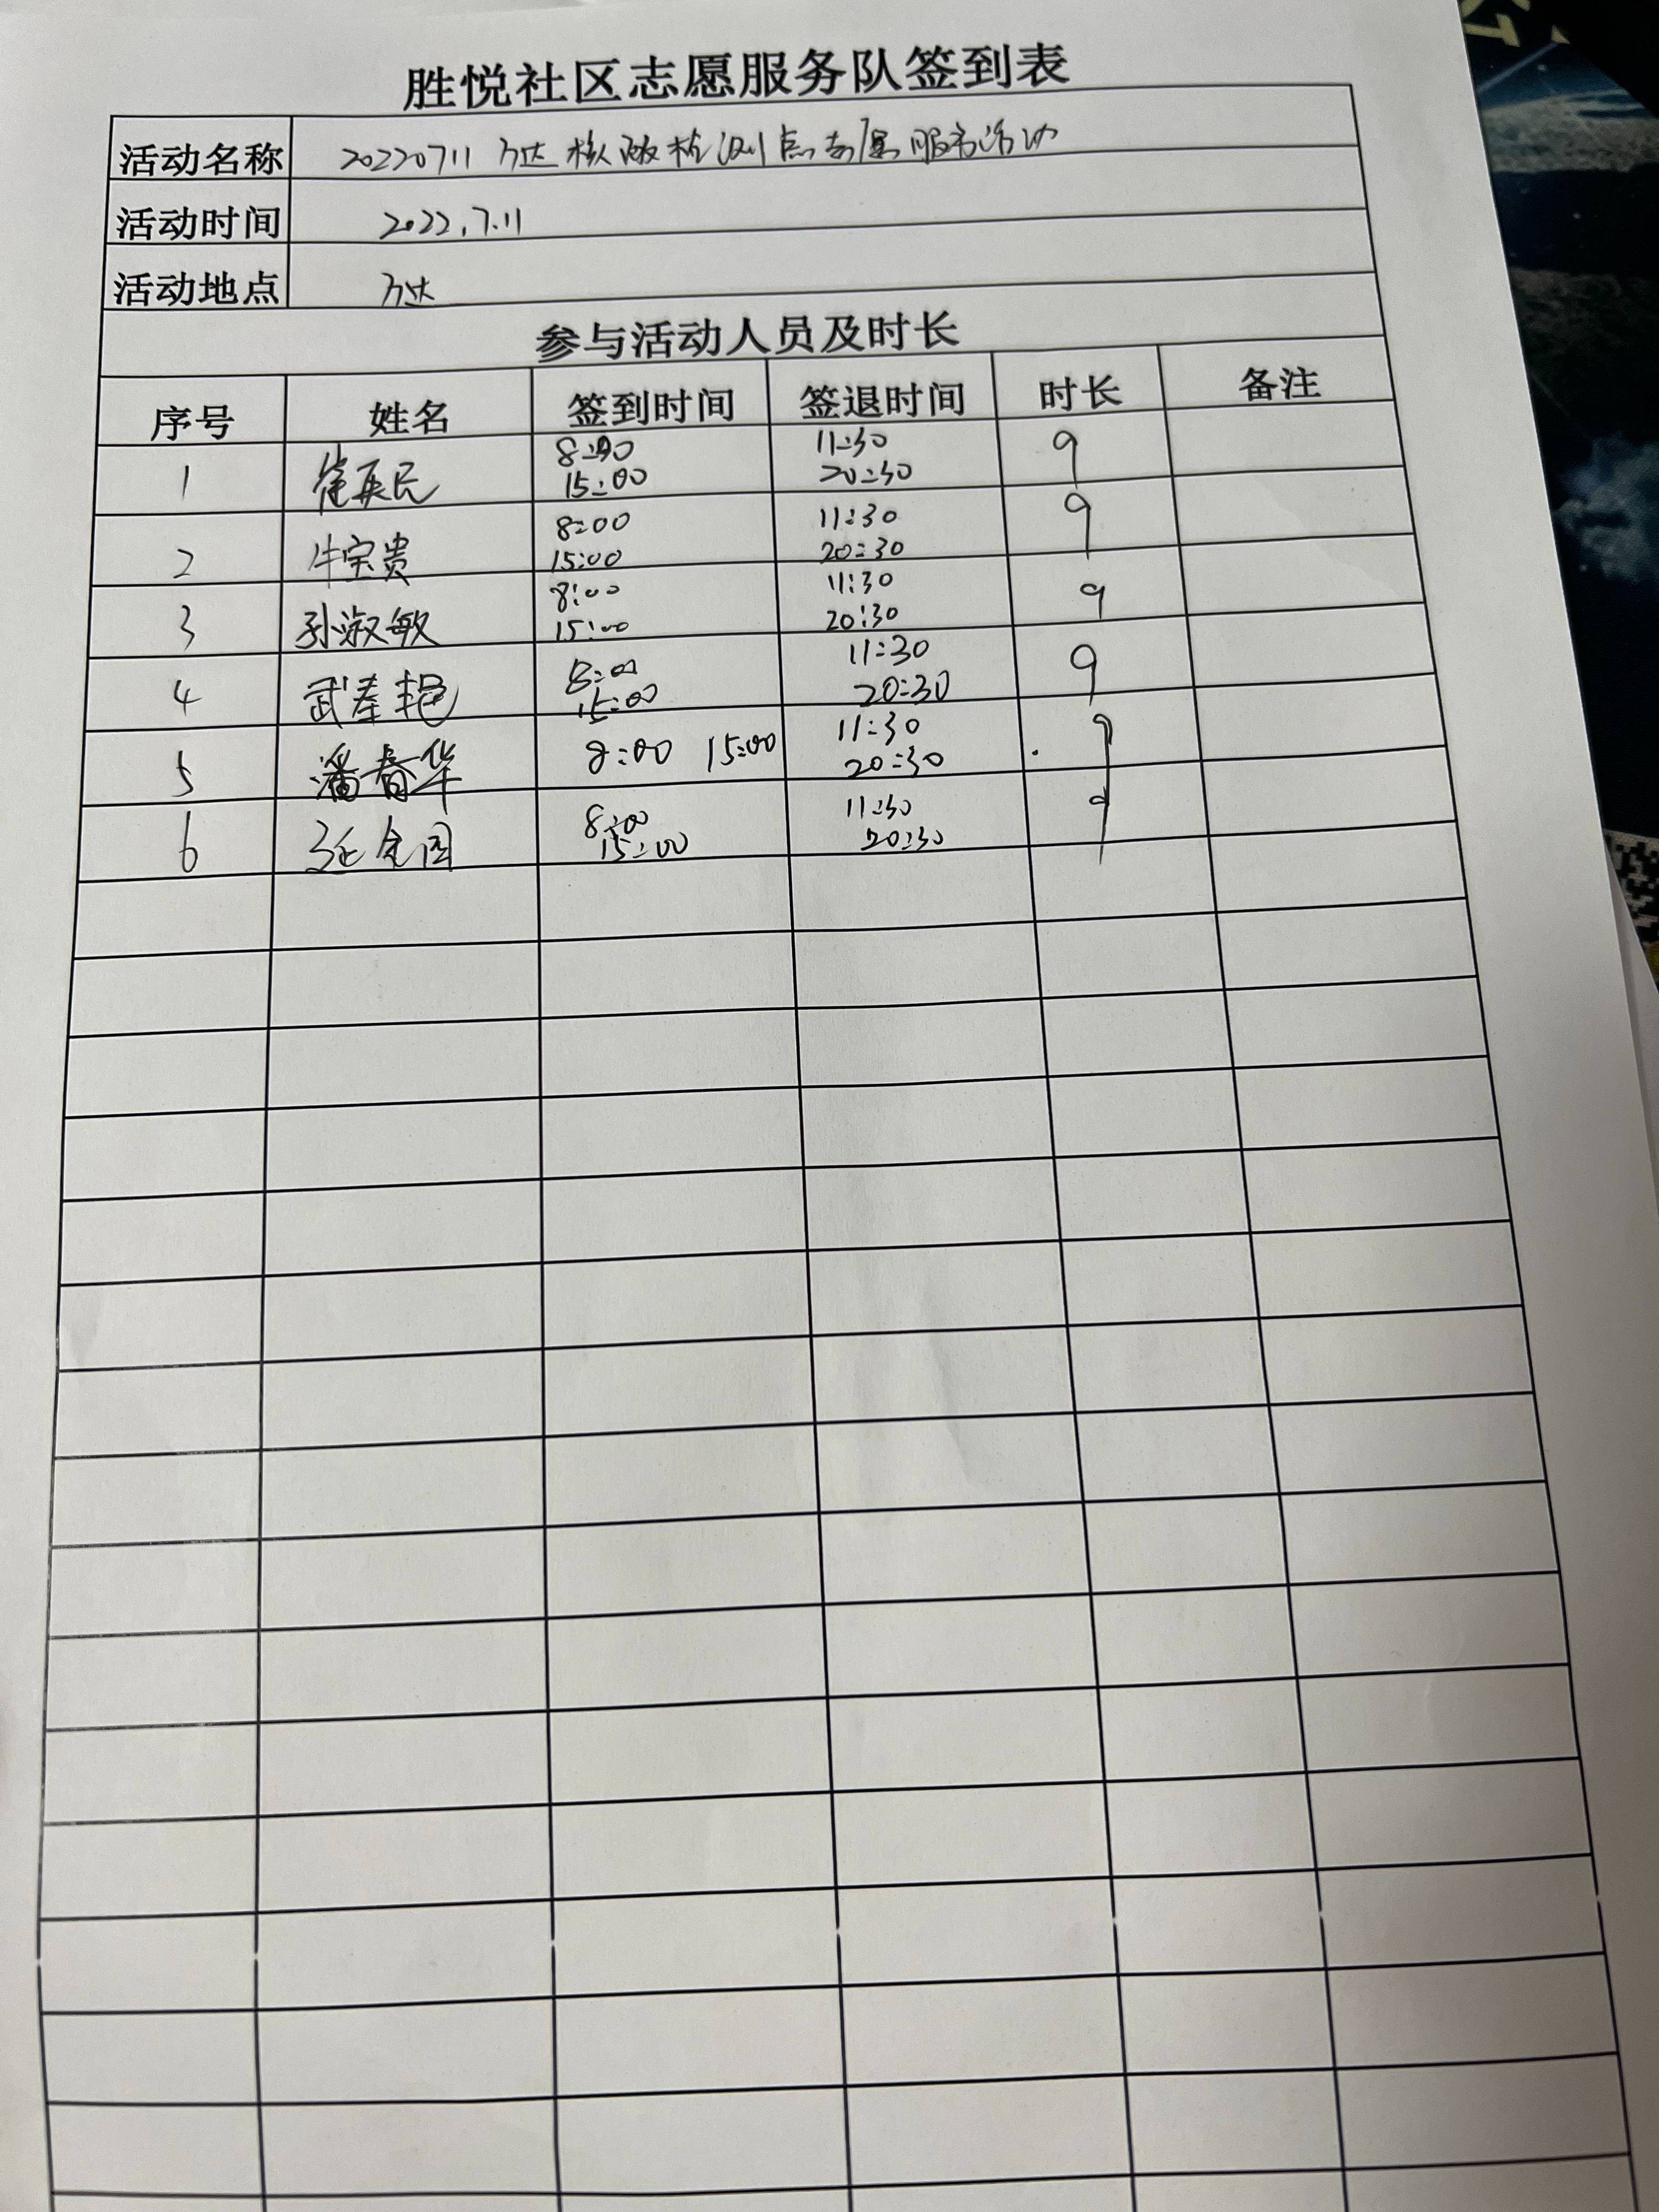 胜悦社区志愿服务队签到表
活动名称 20220711 万达核酸检测点志愿服务活动
活动时间 2022.7.11
活动地点 万达
参与活动人员及时长
序号 姓名 签到时间 签退时间 时长 备注
1 民 8:00 11:30 9
15:00 20:30
2 牛宝贵 8:00 11:30 9
15:00 20:30
3 孙淑敏 8:00 11:30 9
15:00 20:30
4 武春艳 8:00 11:30 9
15:00 20:30
5 潘春华 8:00 15:00 11:30 9
20:30
6 8:00 11:30 9
15:00 20:30